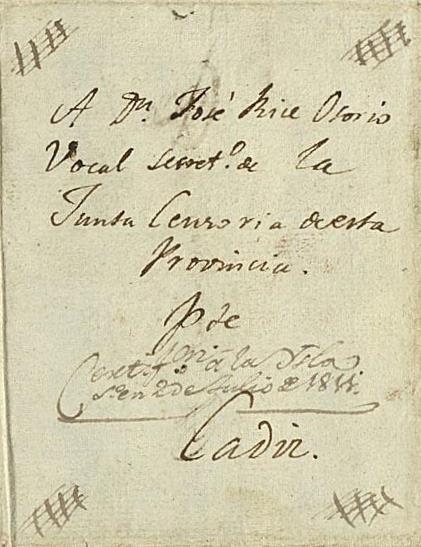 A Dn. José Rice Osorio
Vocal secret.o de la
Junta Censoria de esta
Provincia.
Pde
Certif.o a la Isla
S.n en 2 de Julio de 1811.
Cadiz.